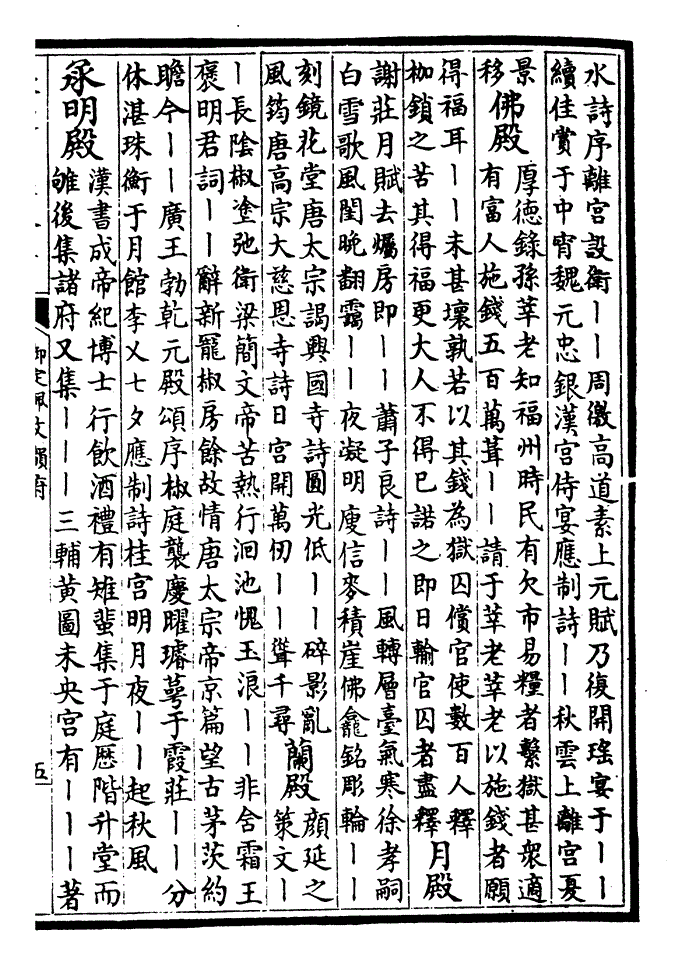 水詩序離宮設衛｜｜周徼高道素上元賦乃復開瑤宴于｜｜
續佳賞于中宵魏元忠銀漢宮侍宴應制詩｜｜秋雲上離宮夏
景
移
佛殿
厚德錄孫莘老知福州時民有欠市易糧者繫獄甚衆適
有富人施錢五百萬葺｜｜請于莘老莘老以施錢者願
得福耳｜｜未甚壞孰若以其錢為獄囚償官使數百人釋
枷鎖之苦其得福更大人不得已諾之即日輸官囚者盡釋
月殿
謝莊月賦去爥房即｜｜蕭子良詩｜｜風轉層臺氣寒徐孝嗣
白雪歌風閨晚翻靄｜｜夜凝明庾信麥積崖佛龕銘彫輪｜｜
刻鏡花堂唐太宗謁興國寺詩圓光低｜｜碎影亂
風筠唐高宗大慈恩寺詩日宮開萬仞｜｜聳千尋
蘭殿
顏延之
策文｜
｜長陰椒塗弛衛梁簡文帝苦熱行洄池愧玉浪｜｜非含霜王
褒明君詞｜｜辭新寵椒房餘故情唐太宗帝京篇望古茅茨約
瞻今｜｜廣王勃乾元殿頌序椒庭襲慶曜璿萼于霞莊｜｜分
休湛珠衡于月館李乂七夕應制詩桂宮明月夜｜｜起秋風
承明殿
漢書成帝紀博士行飲酒禮有雉蜚集于庭歷階升堂而
雊後集諸府又集｜｜｜三輔黃圖未央宮有｜｜｜著
御定佩文韻府
五